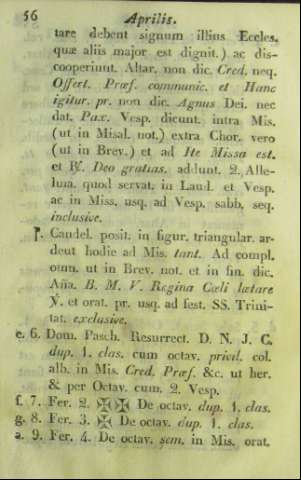 56 Aprilis.
tare debent signum illius Eccles.
quæ aliis major est dignit.) ac dis-
cooperiunt. Altar. non dic. Cred. neq.
Offert. Præf. communic. et Hanc
igitur. pr. non dic. Agnus Dei. nec
dat. Pax. Vesp. dicunt. intra Mis.
(ut in Misal. not.) extra Chor. vero
(ut in Brev.) et ad Ite Missa est.
et ℟. Deo gratias. addunt. 2. Alle-
luia. quod servat. in Laud. et Vesp.
ac in Miss. usq. ad Vesp. sabb. seq.
inclusive.
Candel. posit. in figur. triangular. ar-
dent hodie ad Mis. tant. Ad compl.
omn. ut in Brev. not. et in fin. dic.
Aña. B. M. V. Regina Cœli lætare
℣. et orat. pr. usq. ad fest. SS. Trini-
tat. exclusive.
e. 6. Dom. Pasch. Resurrect. D. N. J. C.
dup. 1. clas. cum octav. privil. col.
alb. in Mis. Cred. Præf. &c. ut her.
& per Octav. cum. 2. Vesp.
f. 7. Fer. 2. ✠ ✠ De octav. dup. 1. clas.
g. 8. Fer. 3. ✠ De octav. dup. 1. clas.
a. 9. Fer. 4. De octav. sem. in Mis. orat.